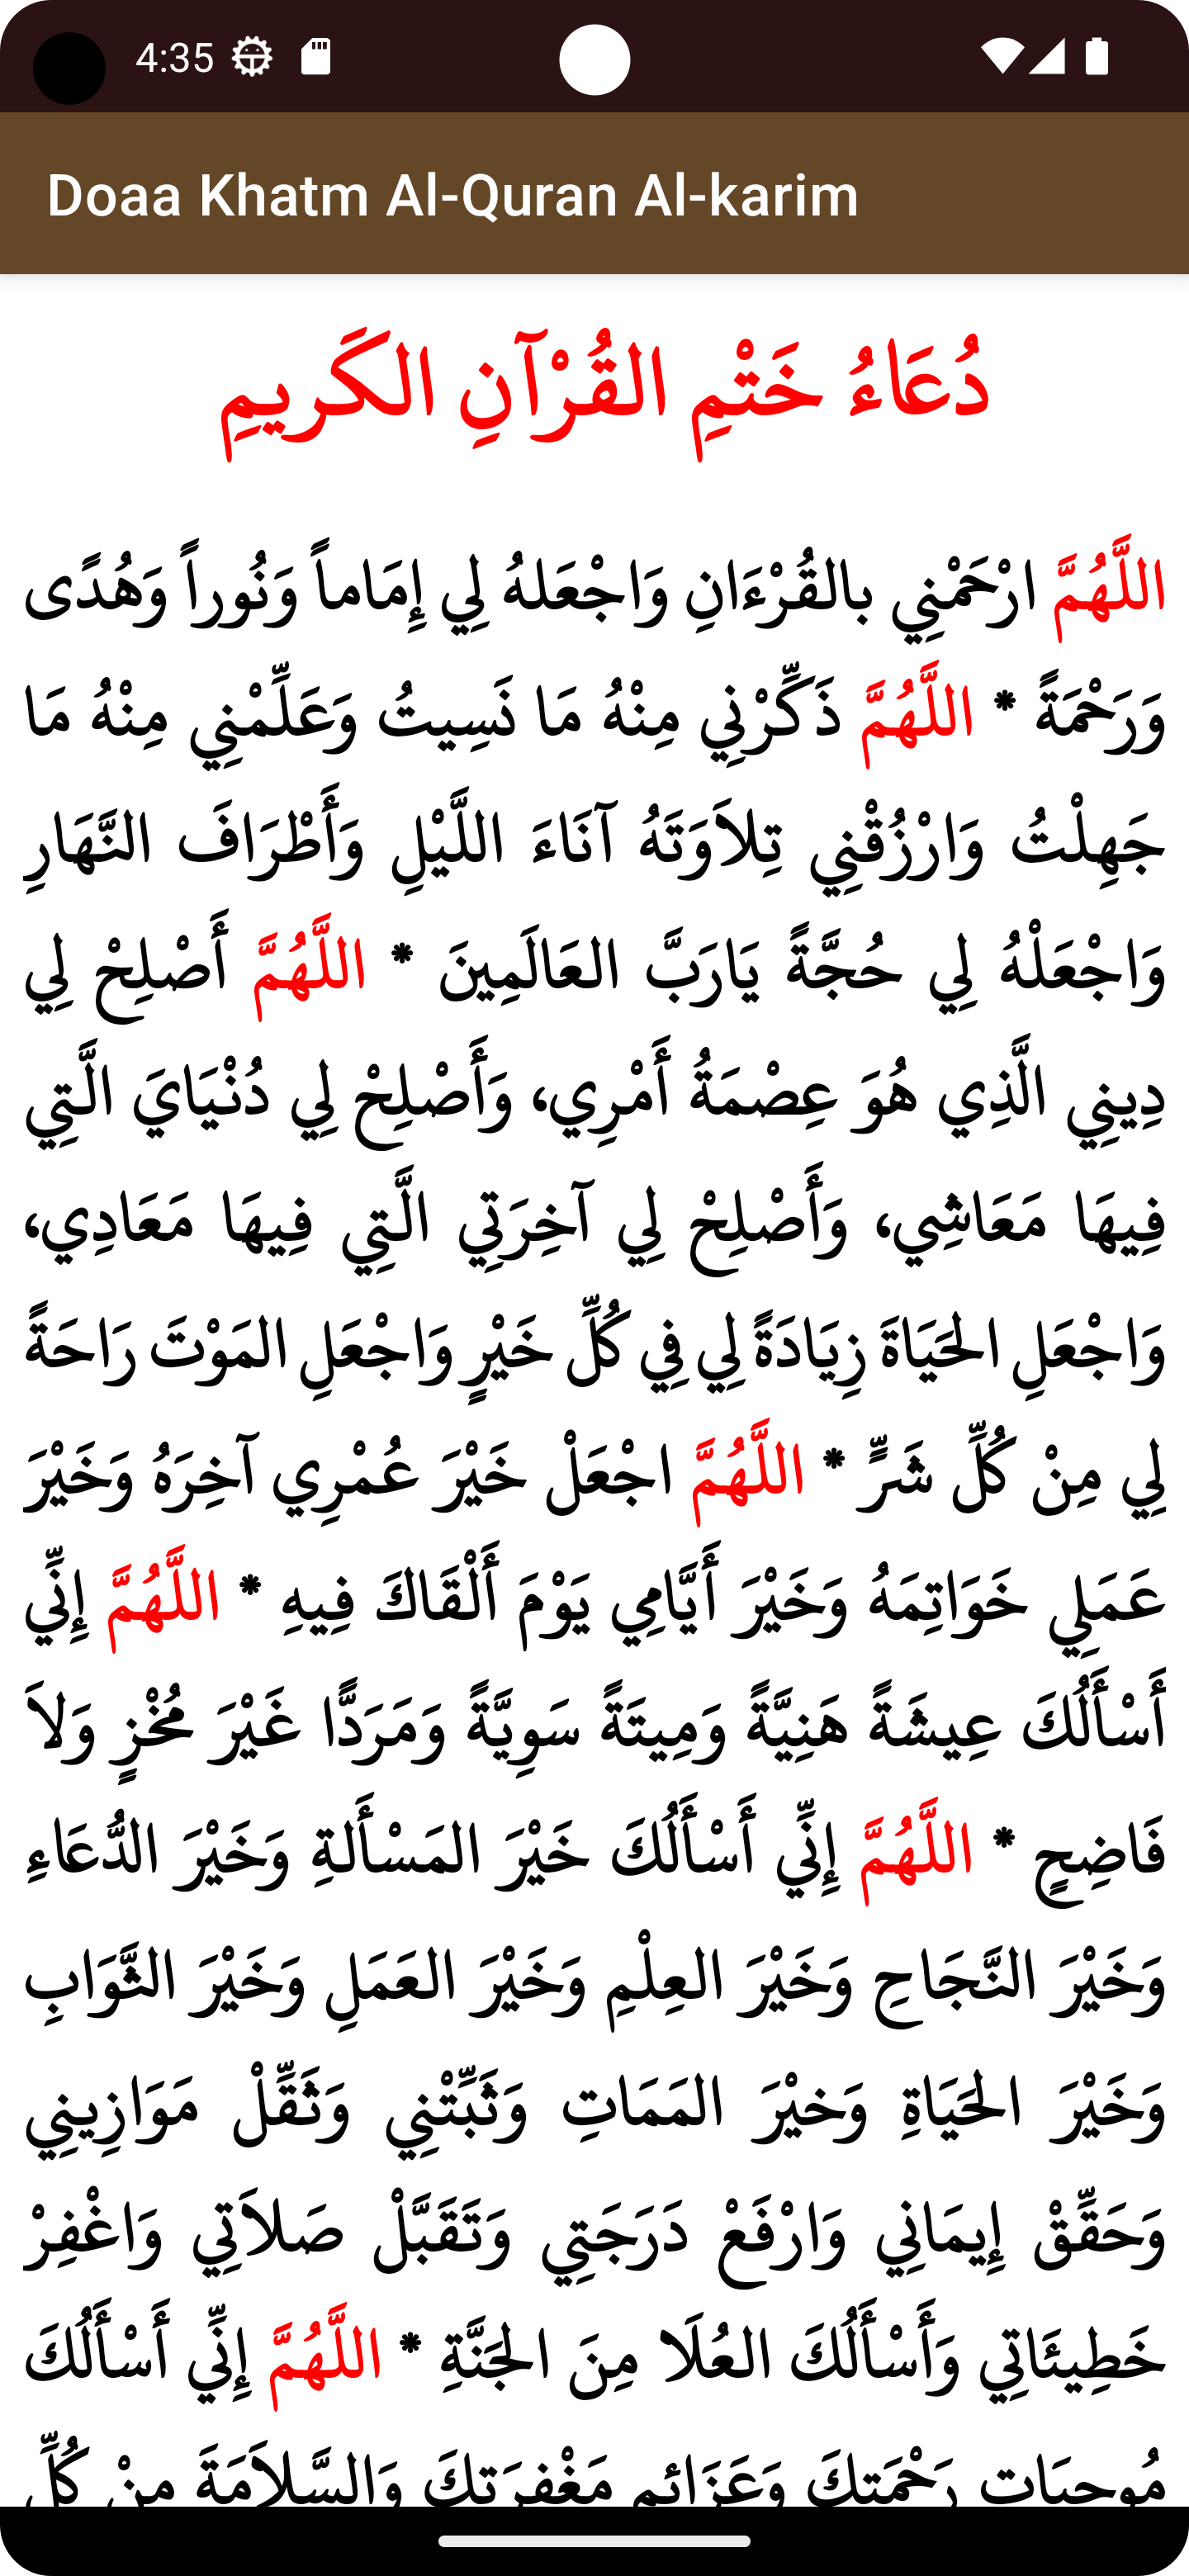 4:35
Doaa Khatm Al-Quran Al-karim
دُعَاءُ خَتْمِ القُرْآنِ الكَريمِ
اللَّهُمَّ ارْحَمْنِي بالقُرْءَانِ وَاجْعَلهُ لِي إِمَاماً وَنُوراً وَهُدًى
وَرَحْمَةً * اللَّهُمَّ ذَكِّرْنِي مِنْهُ مَا نَسِيتُ وَعَلِّمْنِي مِنْهُ مَا
جَهِلْتُ وَارْزُقْنِي تِلاَوَتَهُ آنَاءَ اللَّيْلِ وَأَطْرَافَ النَّهَارِ
وَاجْعَلْهُ لِي حُجَّةً يَارَبَّ العَالَمِينَ * اللَّهُمَّ أَصْلِحْ لِي
دِينِي الَّذِي هُوَ عِصْمَةُ أَمْرِي، وَأَصْلِحْ لِي دُنْيَايَ الَّتِي
فِيهَا مَعَاشِي، وَأَصْلِحْ لِي آخِرَتِي الَّتِي فِيهَا مَعَادِي،
وَاجْعَلِ الحَيَاةَ زِيَادَةً لِي فِي كُلِّ خَيْرٍ وَاجْعَلِ المَوْتَ رَاحَةً
لِي مِنْ كُلِّ شَرٍّ * اللَّهُمَّ اجْعَلْ خَيْرَ عُمْرِي آخِرَهُ وَخَيْرَ
عَمَلِي خَوَاتِمَهُ وَخَيْرَ أَيَّامِي يَوْمَ أَلْقَاكَ فِيهِ * اللَّهُمَّ إِنِّي
أَسْأَلُكَ عِيشَةً هَنِيَّةً وَمِيتَةً سَوِيَّةً وَمَرَدًّا غَيْرَ مُخْزٍ وَلاَ
فَاضِحٍ * اللَّهُمَّ إِنِّي أَسْأَلُكَ خَيْرَ المَسْأَلةِ وَخَيْرَ الدُّعَاءِ
وَخَيْرَ النَّجَاحِ وَخَيْرَ العِلْمِ وَخَيْرَ العَمَلِ وَخَيْرَ الثَّوَابِ
وَخَيْرَ الحَيَاةِ وَخيْرَ المَمَاتِ وَثَبِّتْنِي وَثَقِّلْ مَوَازِينِي
وَحَقِّقْ إِيمَانِي وَارْفَعْ دَرَجَتِي وَتَقَبَّلْ صَلاَتِي وَاغْفِرْ
خَطِيئَاتِي وَأَسْأَلُكَ العُلَا مِنَ الجَنَّةِ * اللَّهُمَّ إِنِّي أَسْأَلُكَ
مُوجِبَاتِ رَحْمَتِكَ وَعَزَائِمِ مَغْفِرَتِكَ وَالسَّلاَمَةَ مِنْ كُلِّ